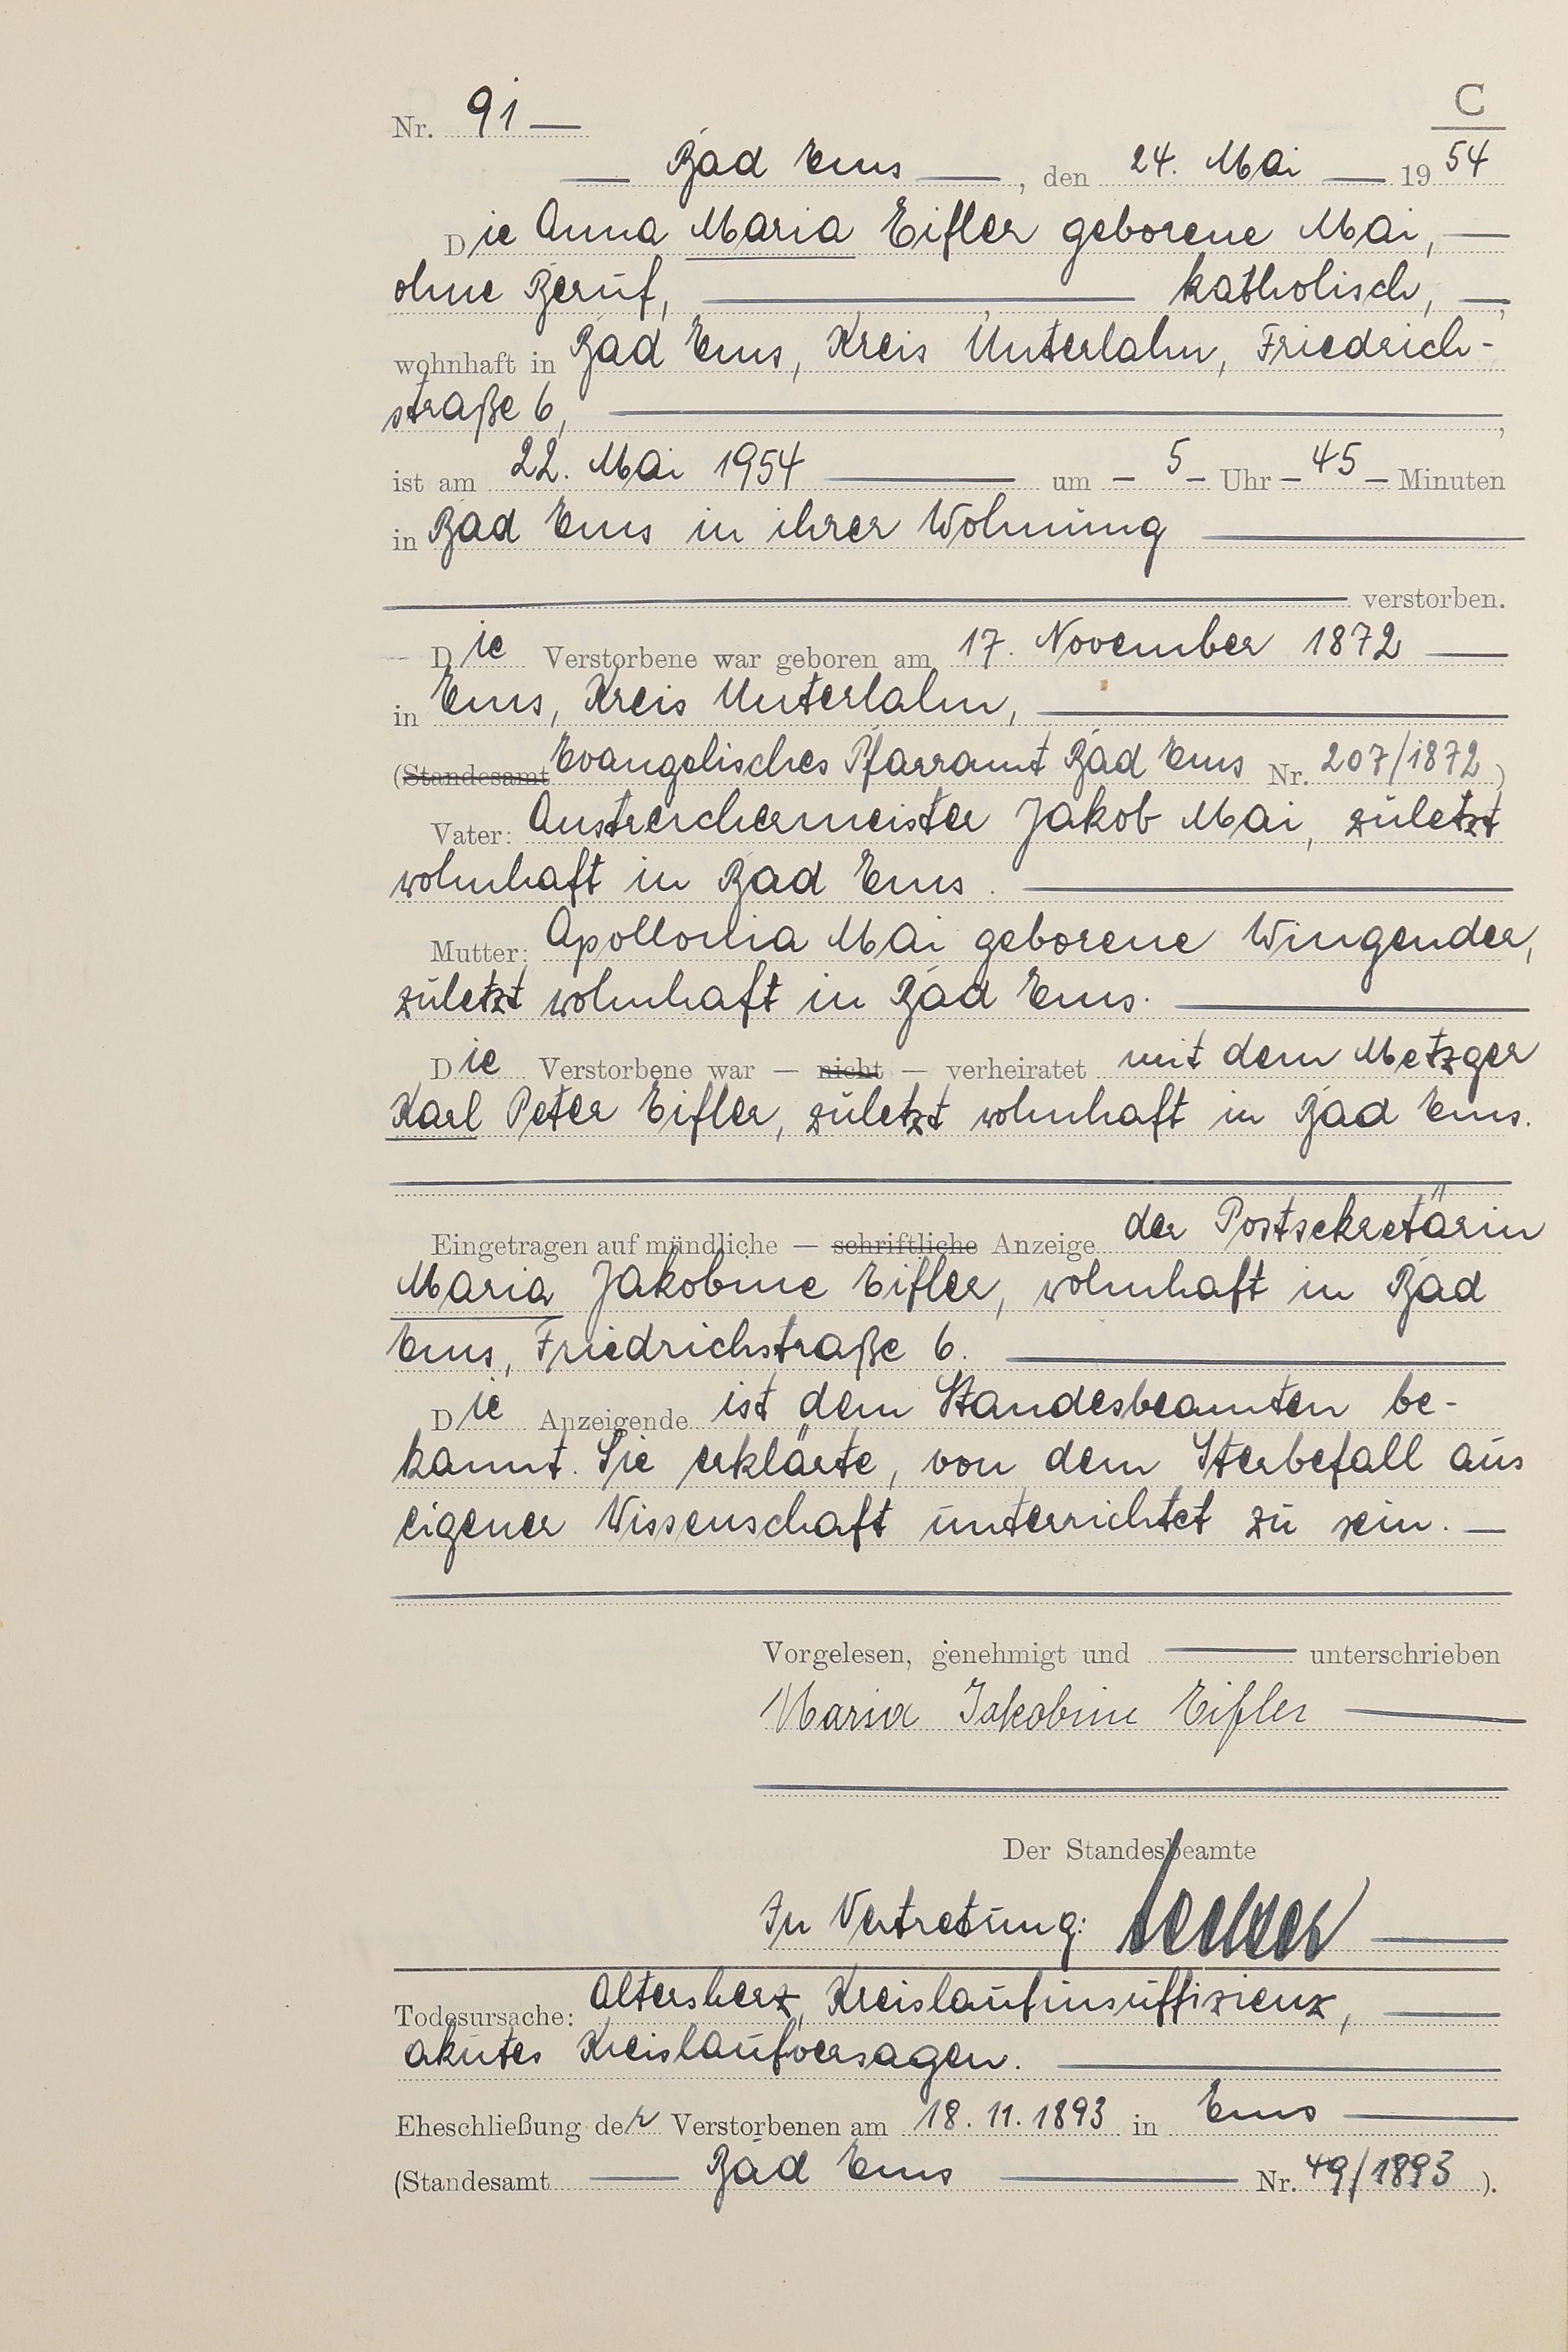 C
Nr. 91 —
— Bad Ems —, den 24. Mai — 1954
Die Anna Maria Eifler geborene Mai, —
ohne Beruf, — katholisch, —,
wohnhaft in Bad Ems, Kreis Unterlahn, Friedrich-
straße 6, —,
ist am 22. Mai 1954 — um — 5 — Uhr — 45 — Minuten
in Bad Ems in ihrer Wohnung —
— verstorben.
Die Verstorbene war geboren am 17. November 1872 —
in Ems, Kreis Unterlahn, —
(Standesamt Evangelisches Pfarramt Bad Ems Nr. 207/1872)
Vater: Anstreichermeister Jakob Mai, zuletzt
wohnhaft in Bad Ems. —
Mutter: Apollonia Mai geborene Wingender,
zuletzt wohnhaft in Bad Ems. —
Die Verstorbene war — nicht — verheiratet mit dem Metzger
Karl Peter Eifler, zuletzt wohnhaft in Bad Ems.
Eingetragen auf mündliche — schriftliche Anzeige der Postsekretärin
Maria Jakobine Eifler, wohnhaft in Bad
Ems, Friedrichstraße 6. —
Die Anzeigende ist dem Standesbeamten be-
kannt. Sie erklärte, von dem Sterbefall aus
eigener Wissenschaft unterrichtet zu sein. —
Vorgelesen, genehmigt und — unterschrieben
Maria Jakobine Eifler —
Der Standesbeamte
In Vertretung: —
Todesursache: Altersherz, Kreislaufinsuffizienz, —
akutes Kreislaufversagen. —
Eheschließung der Verstorbenen am 18.11.1893 in Ems —
(Standesamt — Bad Ems — Nr. 49/1893).